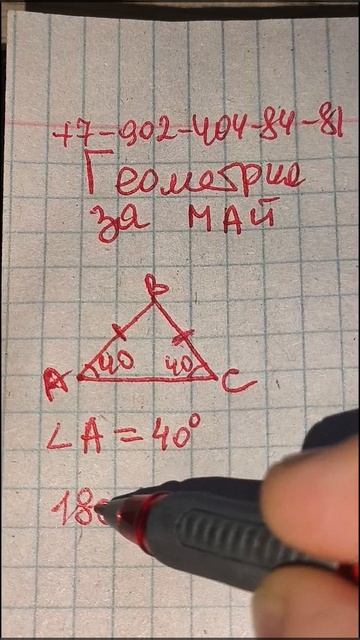 +7-902-404-84-81
Геометрия
за МАЙ
B
40 40
A C
∠A = 40°
18